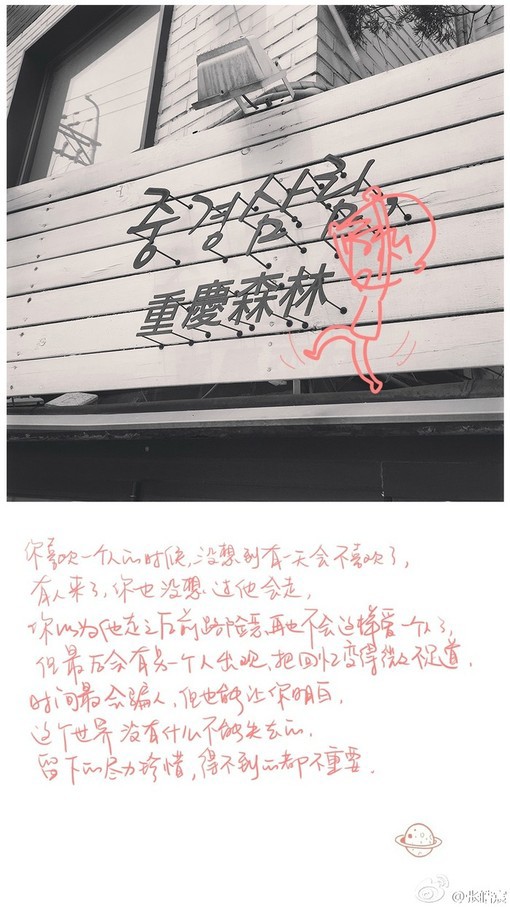 중경삼림
重慶森林
你喜欢一个人的时候,没想到有一天会不喜欢了,
有人来了,你也没想过他会走,
你以为他走之后前路暗雾,再也不会这样爱一个人了,
但最后会有另一个人出现,把回忆变得微不足道.
时间最会骗人,但也能让你明白,
这个世界没有什么不能失去的,
留下的尽力珍惜,得不到的都不重要.